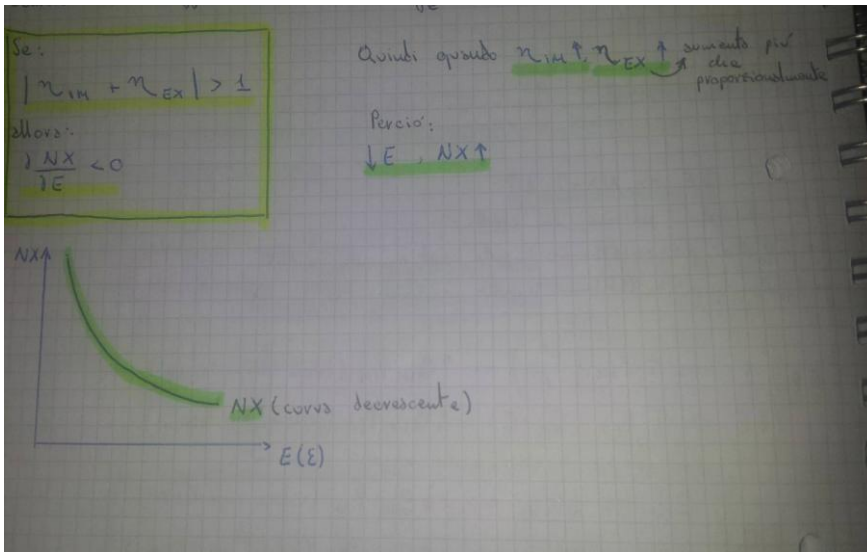 Se:
|η_IM + η_EX| > 1
allora:
∂NX/∂E < 0
Quindi quando η_IM ↑, η_EX ↑ aumenta più
che
proporzionalmente
Perciò:
↓E, NX↑
NX
NX (curva decrescente)
E(ε)